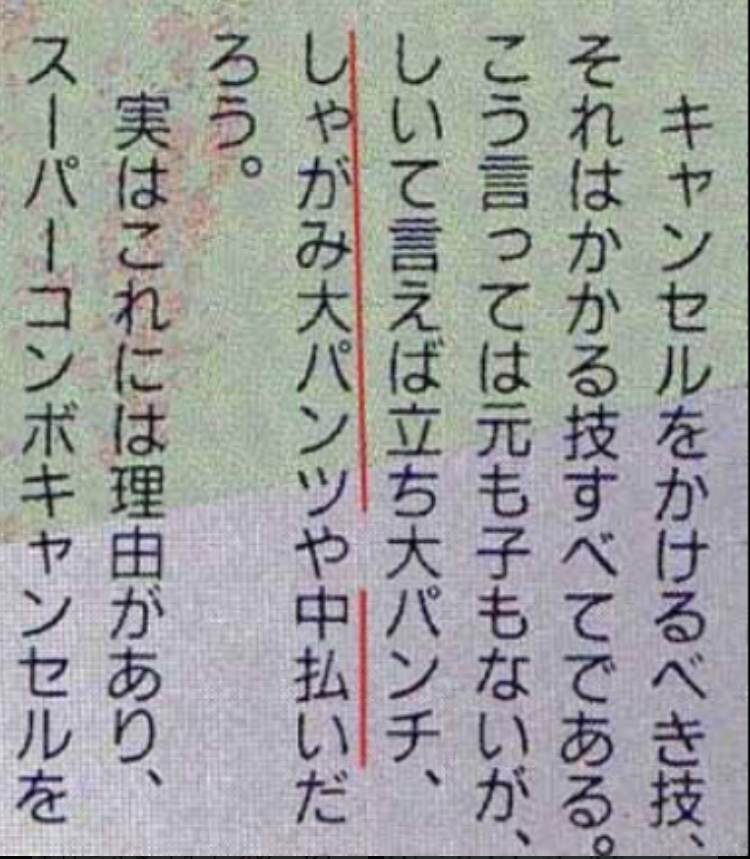 キャンセルをかけるべき技、
それはかかる技すべてである。
こう言っては元も子もないが、
しいて言えば立ち大パンチ、
しゃがみ大パンツや中払いだ
ろう。
実はこれには理由があり、
スーパーコンボキャンセルを